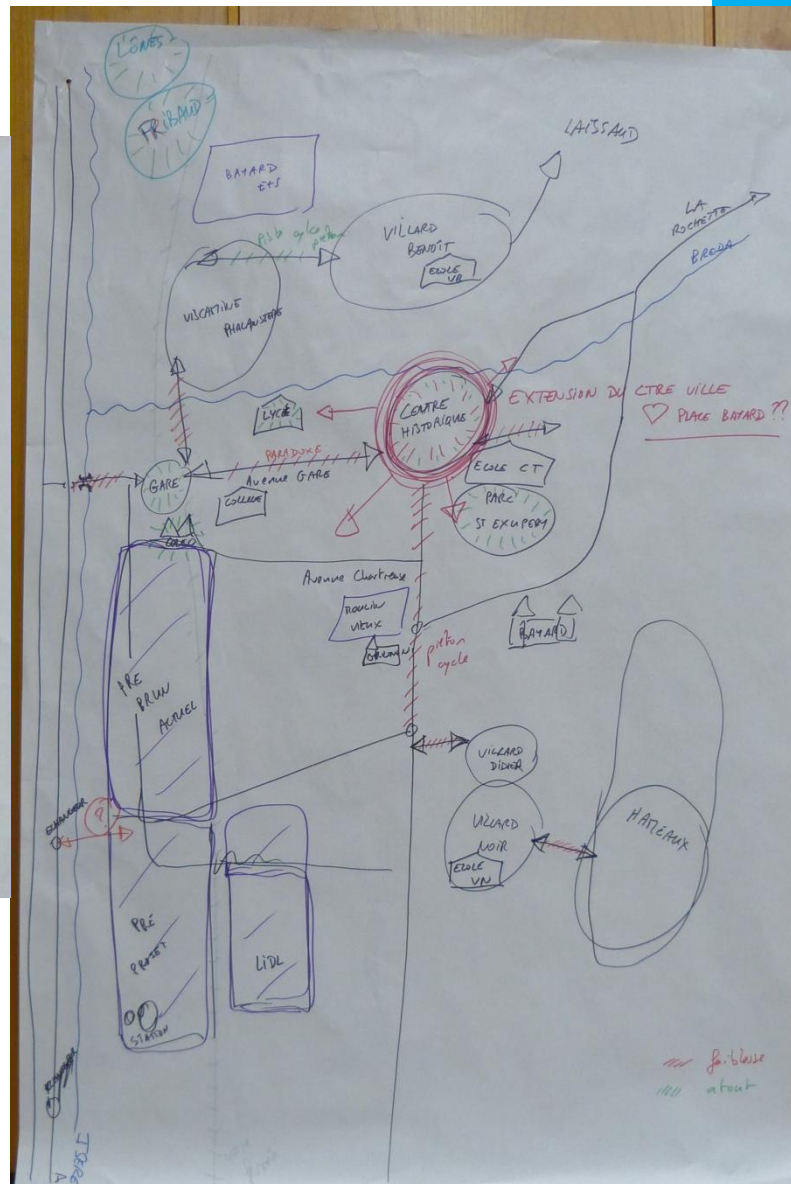 L'ÔNES
FRIBAUD
BAYARD
ETS
LAISSAUD
Piste cycle
piéton
VILLARD
BENOÎT
ECOLE
VB
LA
ROCHETTE
BREDA
VISCAMINE
PHALANSTERE
LYCÉE
CENTRE
HISTORIQUE
EXTENSION DU CTRE VILLE
♡ PLACE BAYARD ??
PARADOXE
Avenue GARE
GARE
COLLEGE
ECOLE CT
PARC
ST EXUPERY
Avenue Chartreuse
MOULIN
VIEUX
BAYARD
piéton
cycle
PRE
BRUN
ACTUEL
VILLARD
DIDIER
VILLARD
NOIR
ECOLE
VN
HAMEAUX
?
PRÉ
PROJET
LIDL
STATION
faiblesse
atout
ISERE
A